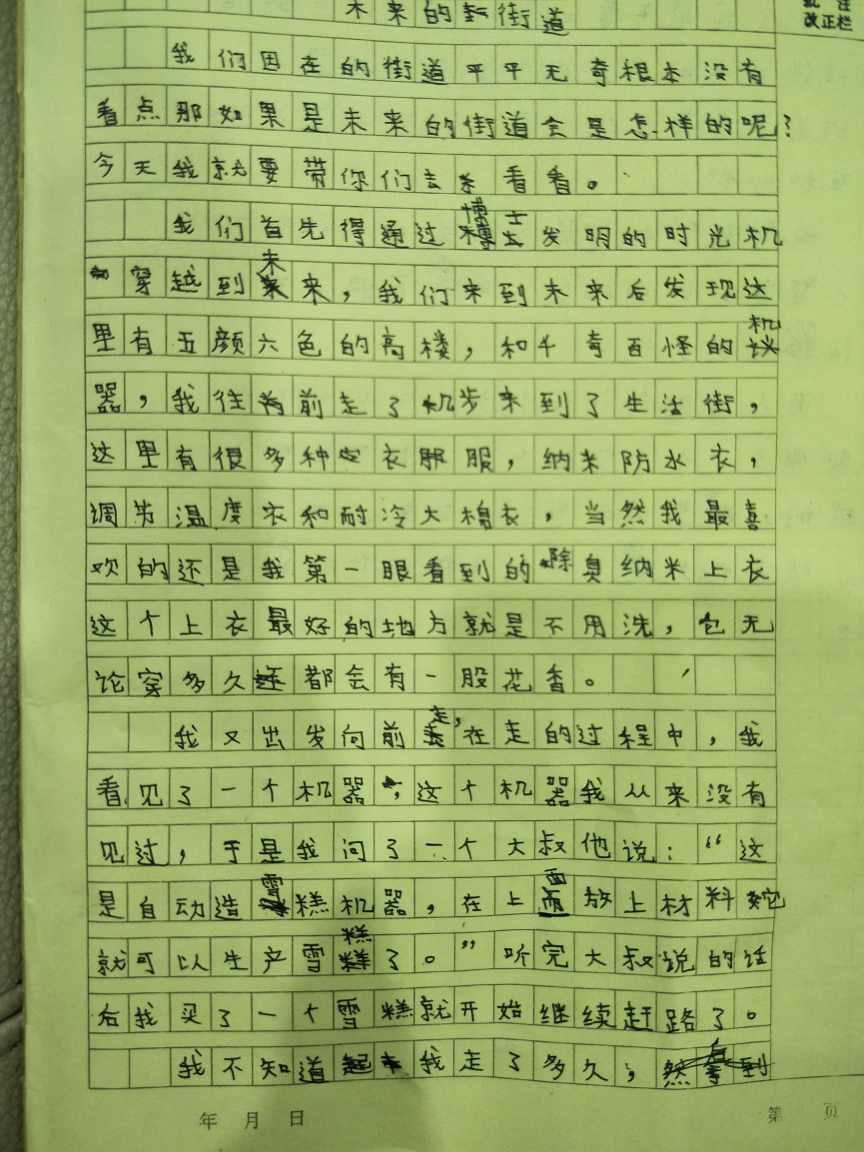 未来的街道
批注
改正栏
我们因在的街道平平无奇根本没有
看点那如果是未来的街道会是怎样的呢？
今天我就要带你们去看看。
我们首先得通过博士发明的时光机
穿越到未来，我们来到未来后发现这
里有五颜六色的高楼，和千奇百怪的机
器，我往前走了机步来到了生活街，
这里有很多种衣服，纳米防水衣，
调节温度衣和耐冷大棉衣，当然我最喜
欢的还是我第一眼看到的除臭纳米上衣
这个上衣最好的地方就是不用洗，它无
论穿多久都会有一股花香。
我又出发向前走，在走的过程中，我
看见了一个机器，这个机器我从来没有
见过，于是我问了一个大叔他说：“这
是自动造雪糕机器，在上面放上材料它
就可以生产雪糕了。”听完大叔说的话
后我买了一个雪糕就开始继续赶路了。
我不知道我走了多久，然到
年 月 日
第 页